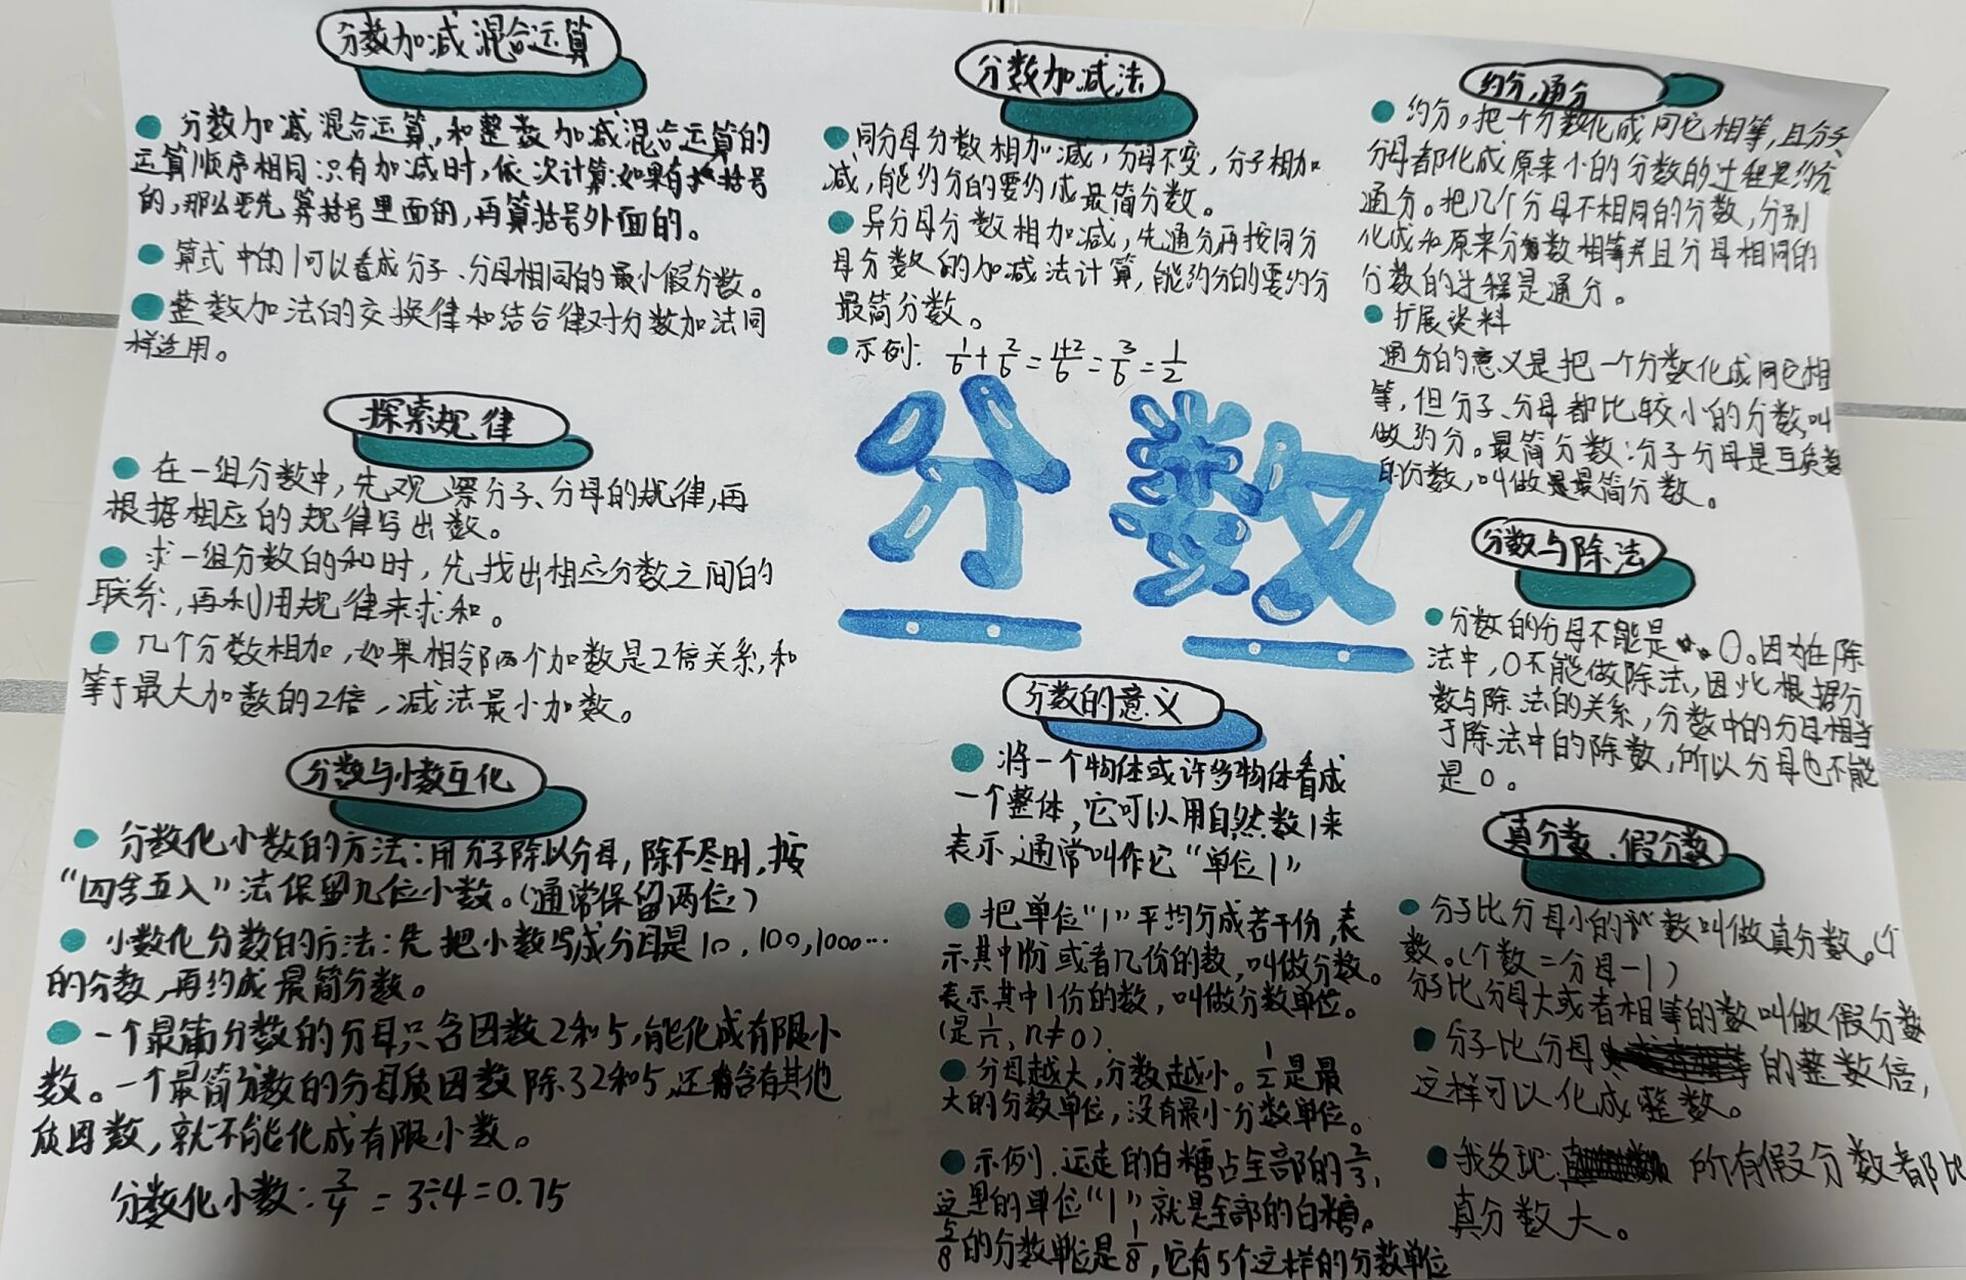 分数加减混合运算
分数加减混合运算,和整数加减混合运算的
运算顺序相同:只有加减时,依次计算:如果有括号
的,那么要先算括号里面的,再算括号外面的。
算式中的1可以看成分子、分母相同的最小假分数。
整数加法的交换律和结合律对分数加法同
样适用。
探索规律
在一组分数中,先观察分子、分母的规律,再
根据相应的规律写出数。
求一组分数的和时,先找出相应分数之间的
联系,再利用规律来求和。
几个分数相加,如果相邻两个加数是2倍关系,和
等于最大加数的2倍,减法最小加数。
分数与小数互化
分数化小数的方法:用分子除以分母,除不尽时,按
“四舍五入”法保留几位小数。(通常保留两位)
小数化分数的方法:先把小数写成分母是10,100,1000…
的分数,再约成最简分数。
一个最简分数的分母只含因数2和5,能化成有限小
数。一个最简分数的分母质因数除了2和5,还含有其他
质因数,就不能化成有限小数。
分数化小数:3/4=3÷4=0.75
分数加减法
同分母分数相加减,分母不变,分子相加
减,能约分的要约成最简分数。
异分母分数相加减,先通分再按同分
母分数的加减法计算,能约分的要约分
最简分数。
示例:1/6+2/6=1+2/6=3/6=1/2
分数
分数的意义
将一个物体或许多物体看成
一个整体,它可以用自然数1来
表示,通常叫作它“单位1”
把单位“1”平均分成若干份,表
示其中 或者几份的数,叫做分数。
表示其中1份的数,叫做分数单位。
(是1/n,n≠0).
分母越大,分数越小。1/2是最
大的分数单位,没有最小分数单位。
示例.运走的白糖占全部的2/3,
这里的单位“1”就是全部的白糖。
5/8的分数单位是1/8,它有5个这样的分数单位
约分,通分
约分。把一个分数化成同它相等,且分子、
分母都化成原来小的分数的过程是约分
通分。把几个分母不相同的分数,分别
化成和原来分数相等并且分母相同的
分数的过程是通分。
扩展资料
通分的意义是把一个分数化成同它相
等,但分子、分母都比较小的分数,叫
做约分。最简分数:分子分母是互质数
的分数,叫做是最简分数。
分数与除法
分数的分母不能是0。因为在除
法中,0不能做除法,因此根据分
数与除法的关系,分数中的分母相当
于除法中的除数,所以分母也不能
是0。
真分数、假分数
分子比分母小的 数叫做真分数。(个
数。(个数=分母-1)
分子比分母大或者相等的数叫做假分数
分子比分母 的整数倍,
这样可以化成整数。
我发现: 所有假分数都比
真分数大。